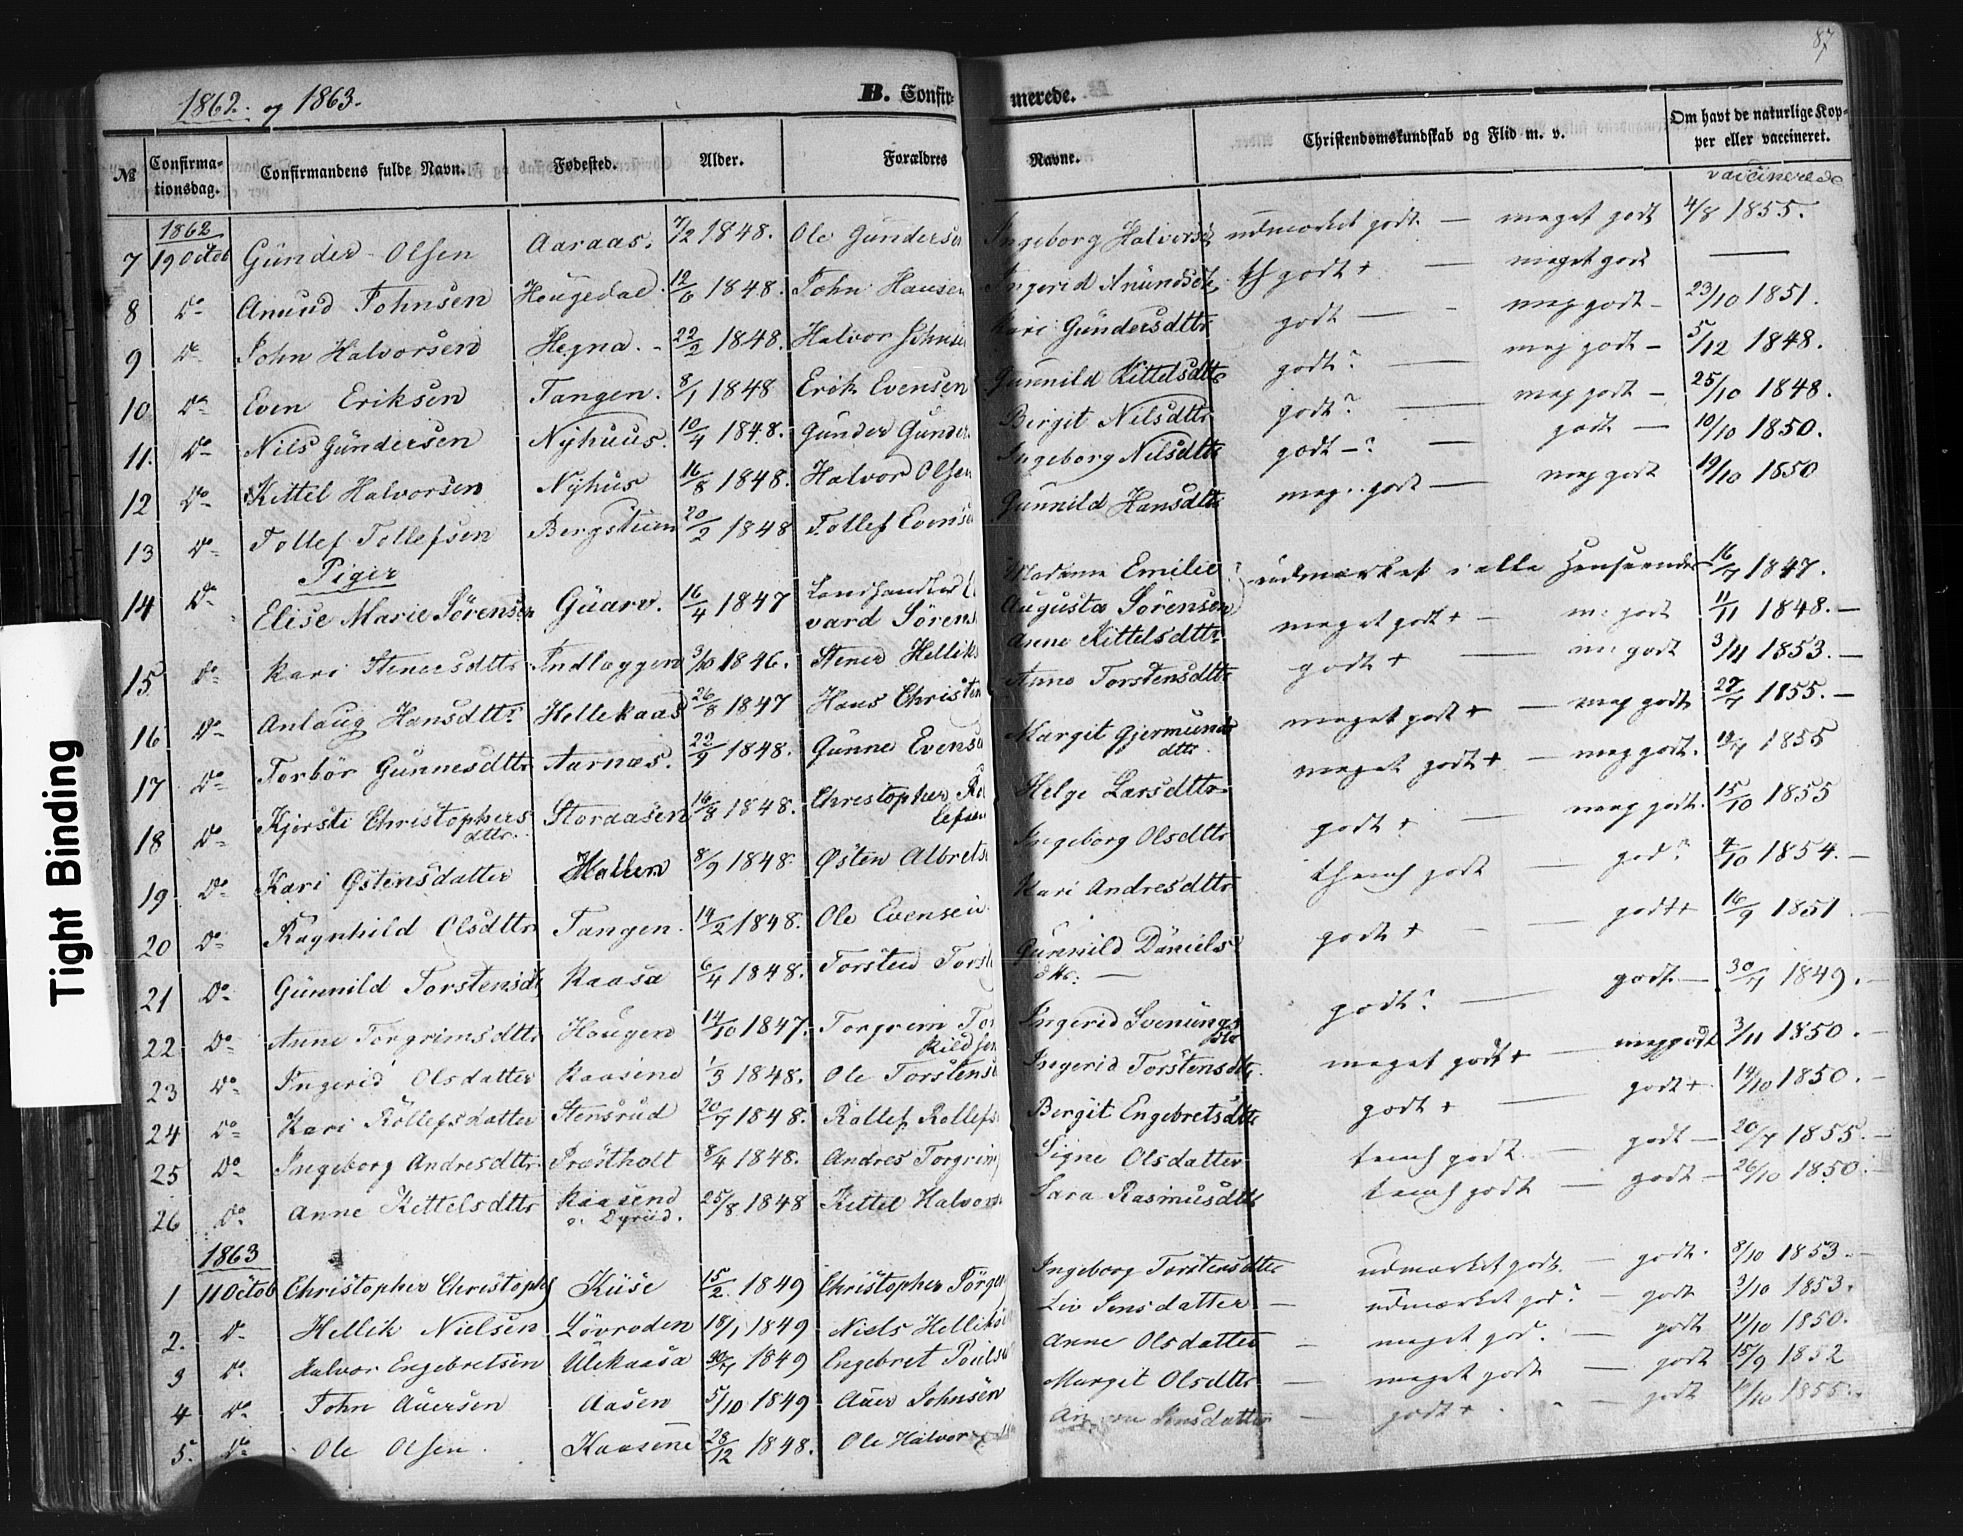 87
1862. og 1863.
B. Confir- merede.
№ Confirma-tionsdag. Confirmandens fulde Navn. Fødested. Alder. Forældres Navne. Christendomskundskab og Flid m. v. Om havt de naturlige Kop-per eller vaccineret.
vaccinerede
1862
7 19 Octob Gunder Olsen Aaraas. 7/12 1848. Ole Gunderse Ingeborg Halvorsd udmærket godt. — meget godt 4/8 1855.
8 Do Anund Johnsen Hougedal. 12/6 1848. John Hansen Ingerid Anundsdt godt + — meget godt —
9 Do John Halvorsen Hegna. 22/2 1848. Halvor Johnse Kari Gundersdttr godt — meg godt — 23/10 1851.
10 Do Even Eriksen Tangen. 8/1 1848 Erik Evensen Gunnild Kittelsdttr godt? — meg godt — 5/12 1848.
11. Do Nils Gundersen Nyhuus. 10/4 1848. Gunder Gunder Birgit Nilsdttr godt? — meg godt — 25/10 1848.
12 Do Kittel Halvorsen Nyhus 16/8 1848. Halvor Olsen Ingeborg Nilsdttr godt —? — godt — 10/10 1850.
13 Do Tollef Tollefsen 20/2 1848 Tollef Evense Gunnild Hansdttr meg. godt — meg godt 19/10 1850
Piger
14 Do Elise Marie Sørensen Guarv. 16/4 1847 Landhandler
vard Sørens Madame Emilie Augusta Sørensen udmærket i alle Henseender 16/7 1847.
15 Do Kari Stenersdttr Indlæggen 3/10 1846. Stener Helliks Anne Kittelsdttr. meget godt + — m. godt 11/11 1848. —
16 Do Anlaug Hansdttr Hellekaas 26/8 1847 Hans Christen Anne Torstensdttr godt + — m: godt 3/11 1853. —
17 Do Torbør Gunnesdttr Aarnæs. 22/9 1848. Gunne Evense Margit Gjermunds
dttr. meget godt + — meg godt 27/7 1855. —
18 Do Kjersti Christophers
dttr. Storaasen 16/8 1848. Christopher
lefsen Helge Larsdttr meget godt + — meg godt. 1855
19 Do Kari Østensdatter Hallem 8/9 1848. Østen Albrets Ingeborg Olsdttr godt + — meg godt. 15/10 1855
20 Do Ragnhild Olsdttr Tangen. 14/2 1848. Ole Evensen Kari Andresdttr godt — god? 1854. —
21 Do Gunnild Torstensdt Kaasa 6/4 1848. Torsten Torst Gunnild Daniels
dttr. — godt + — godt+ 16/9 1851 —
22 Do Anne Torgrimsdttr Hougen 14/10 1847. Torgrim Tor
kildsen Ingerid Svenungs
dtr godt? — godt — 30/7 1849. —
23 Do Ingerid Olsdatter Kaasene 1/3 1848. Ole Torstense Ingerid Torstensdtr. meget godt + — meg godt 3/11 1850. —
24 Do Kari Rollefsdatter Stensrud 20/7 1848. Rollef Rollefs Bergit Engebretsdtr godt + — godt + 14/10 1850. —
25 Do Ingeborg Andresdttr. Præstholt 8/4 1848. Andres Torgrim Signe Olsdatter temf godt — godt — 20/7 1855. —
26 Do Anne Kittelsdttr Kaasene
o. Dyrud. 25/8 1848 Kittel Halvors Sara Rasmusdttr temf godt — godt — 26/10 1850.
1863
1 11 Octob Christopher Christoph Kuse 15/2 1849 Christopher Ingeborg Torstensdtter udmærket godt. — godt. 8/10 1853. —
2. Do Hellik Nielsen Løvroden 18/1 1849 Niels Helliks Liv Jensdatter — udmærket god? — godt 3/10 1853.
3 Do Halvor Engebretsen Ulekaasa 30/7 1849 Engebret Pouls Anne Olsdatter — meget god. — godt 11/10 1850.
4 Do John Auersen Aasen 5/10 1849 Auer Johnsen Margit Olsdttr — meget godt — godt 15/9 1852
5. Do Ole Olsen. Kaasene 28/12 1848. Ole Halvor Jensdatter — godt + — godt 1855.
Tight Binding